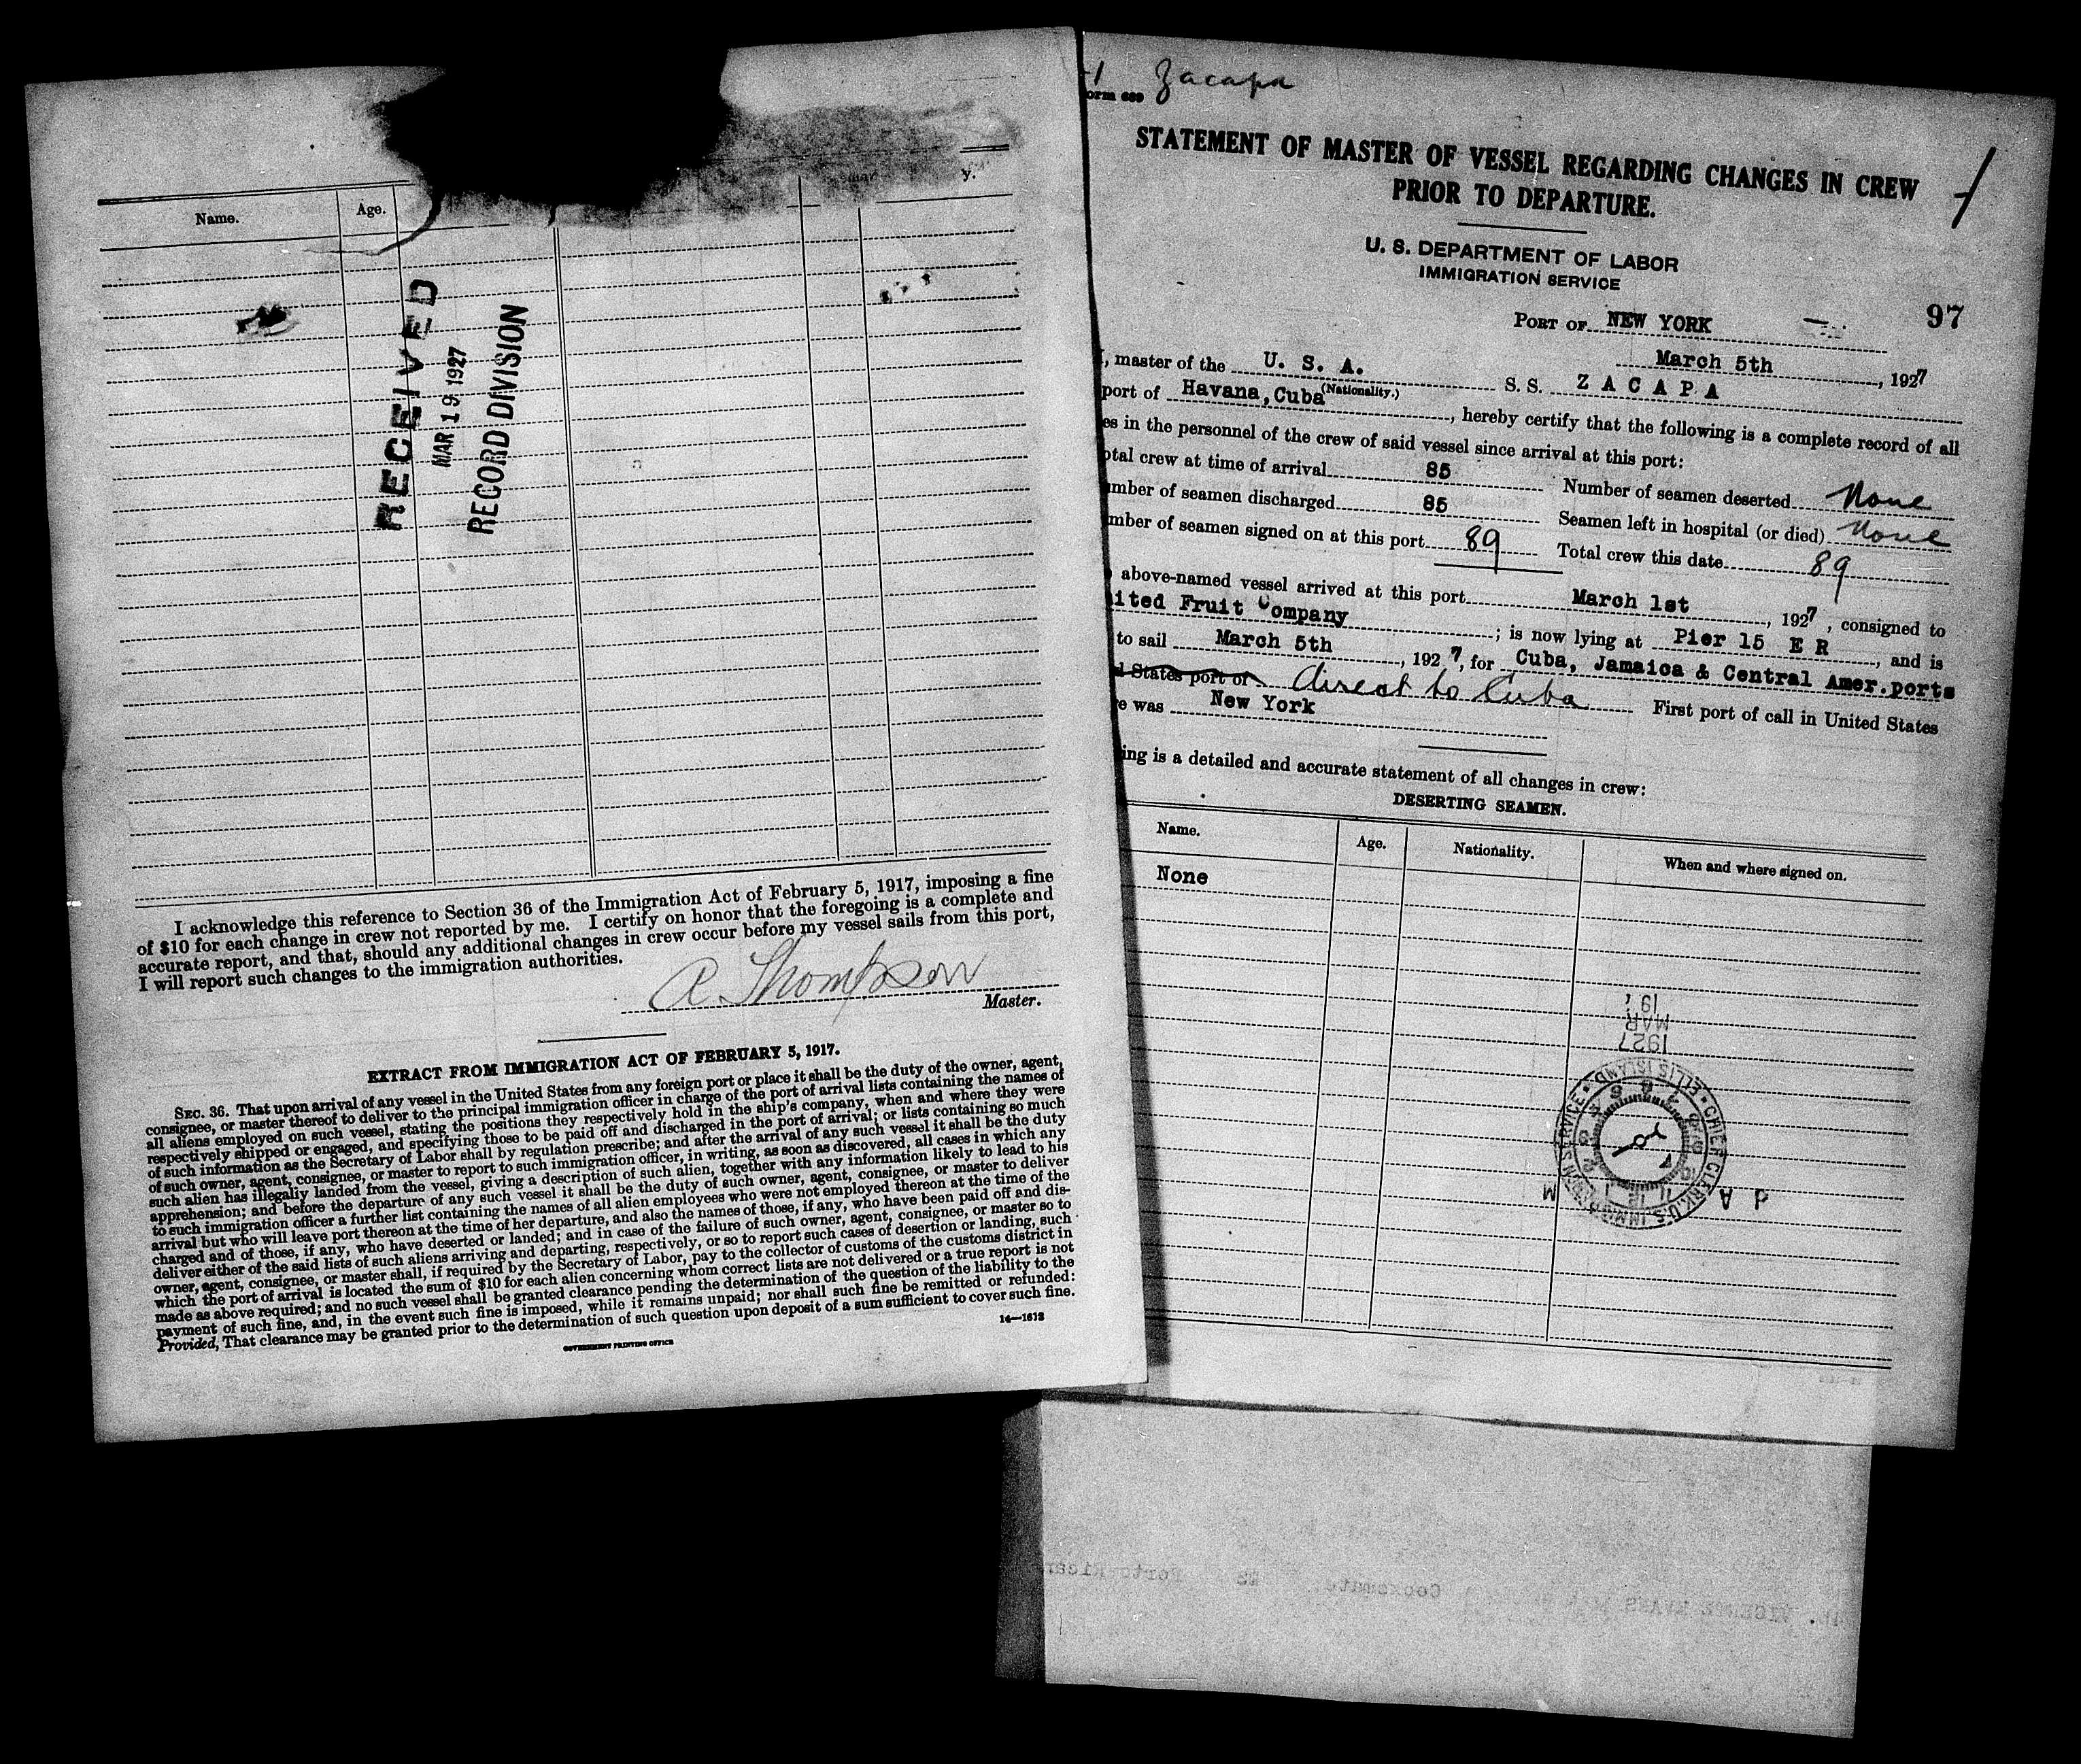 Name.
Age.
y.
RECEIVED
MAR 19 1927
RECORD DIVISION
I acknowledge this reference to Section 36 of the Immigration Act of February 5, 1917, imposing a fine
of $10 for each change in crew not reported by me. I certify on honor that the foregoing is a complete and
accurate report, and that, should any additional changes in crew occur before my vessel sails from this port,
I will report such changes to the immigration authorities.
R. Thompson
Master.
EXTRACT FROM IMMIGRATION ACT OF FEBRUARY 5, 1917.
SEC. 36. That upon arrival of any vessel in the United States from any foreign port or place it shall be the duty of the owner, agent,
consignee, or master thereof to deliver to the principal immigration officer in charge of the port of arrival lists containing the names of
all aliens employed on such vessel, stating the positions they respectively hold in the ship's company, when and where they were
respectively shipped or engaged, and specifying those to be paid off and discharged in the port of arrival; or lists containing so much
of such information as the Secretary of Labor shall by regulation prescribe; and after the arrival of any such vessel it shall be the duty
of such owner, agent, consignee, or master to report to such immigration officer, in writing, as soon as discovered, all cases in which any
such alien has illegally landed from the vessel, giving a description of such alien, together with any information likely to lead to his
apprehension; and before the departure of any such vessel it shall be the duty of such owner, agent, consignee, or master to deliver
to such immigration officer a further list containing the names of all alien employees who were not employed thereon at the time of the
arrival but who will leave port thereon at the time of her departure, and also the names of those, if any, who have been paid off and dis-
charged and of those, if any, who have deserted or landed; and in case of the failure of such owner, agent, consignee, or master so to
deliver either of the said lists of such aliens arriving and departing, respectively, or so to report such cases of desertion or landing, such
owner, agent, consignee, or master shall, if required by the Secretary of Labor, pay to the collector of customs of the customs district in
which the port of arrival is located the sum of $10 for each alien concerning whom correct lists are not delivered or a true report is not
made as above required; and no such vessel shall be granted clearance pending the determination of the question of the liability to the
payment of such fine, and, in the event such fine is imposed, while it remains unpaid; nor shall such fine be remitted or refunded:
Provided, That clearance may be granted prior to the determination of such question upon deposit of a sum sufficient to cover such fine.
GOVERNMENT PRINTING OFFICE
14—1612
-1 Zacapa
orm 689
STATEMENT OF MASTER OF VESSEL REGARDING CHANGES IN CREW
PRIOR TO DEPARTURE.
U. S. DEPARTMENT OF LABOR
IMMIGRATION SERVICE
97
PORT OF NEW YORK
March 5th, 1927
, master of the U. S. A. S. S. Z A C A P A
(Nationality.)
port of Havana, Cuba, hereby certify that the following is a complete record of all
es in the personnel of the crew of said vessel since arrival at this port:
otal crew at time of arrival 85 Number of seamen deserted None
umber of seamen discharged 85 Seamen left in hospital (or died) None
mber of seamen signed on at this port 89 Total crew this date 89
above-named vessel arrived at this port March 1st, 1927, consigned to
ited Fruit Company; is now lying at Pier 15 E R, and is
to sail March 5th, 1927, for Cuba, Jamaica & Central Amer.ports
d States port of direct to Cuba First port of call in United States
e was New York
ing is a detailed and accurate statement of all changes in crew:
DESERTING SEAMEN.
Name.
Age.
Nationality.
When and where signed on.
None
19,
MAR
1927
CHIEF CLERK U.S. IMMIGRATION SERVICE • ELLIS ISLAND •
A M
Porto Rican
VICENTE EVANS